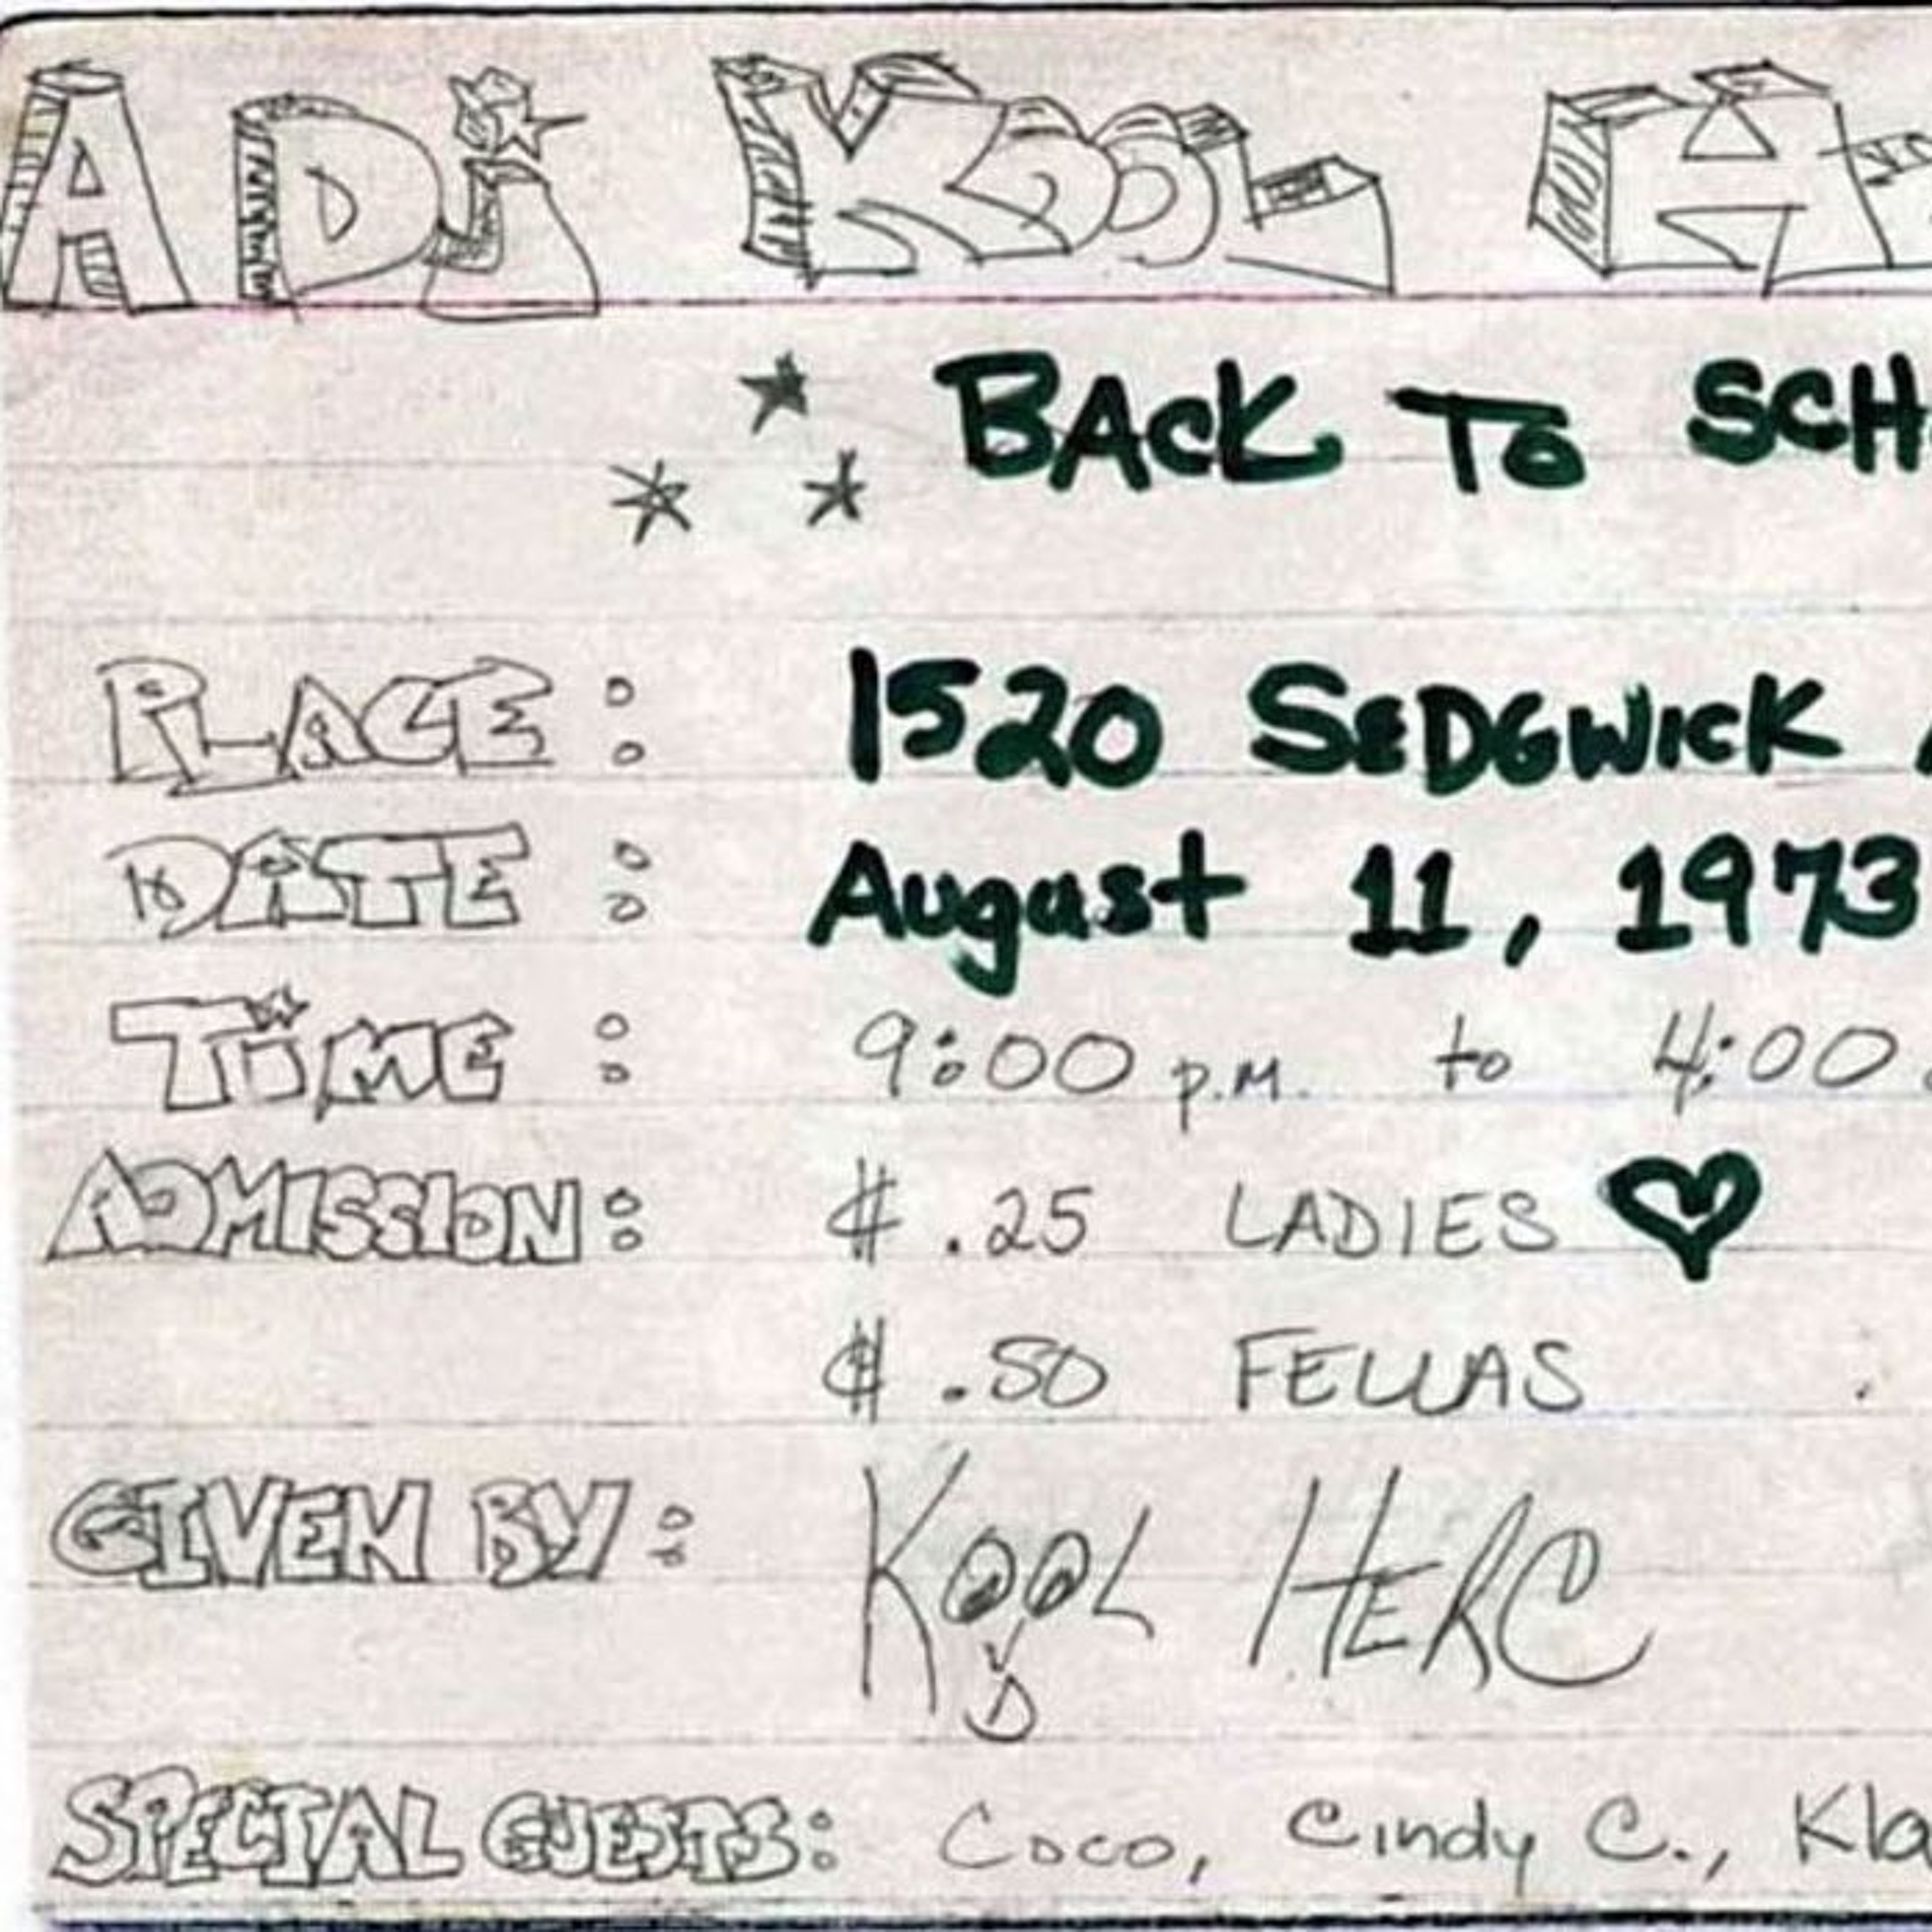 A DJ KOOL H
BACK TO SCH
PLACE: 1520 SEDGWICK A
DATE: August 11, 1973
TIME: 9:00 p.m. to 4:00
ADMISSION: $ .25 LADIES
$ .50 FELLAS
GIVEN BY: KOOL HERC
D
SPECIAL GUESTS: Coco, Cindy C., Kla